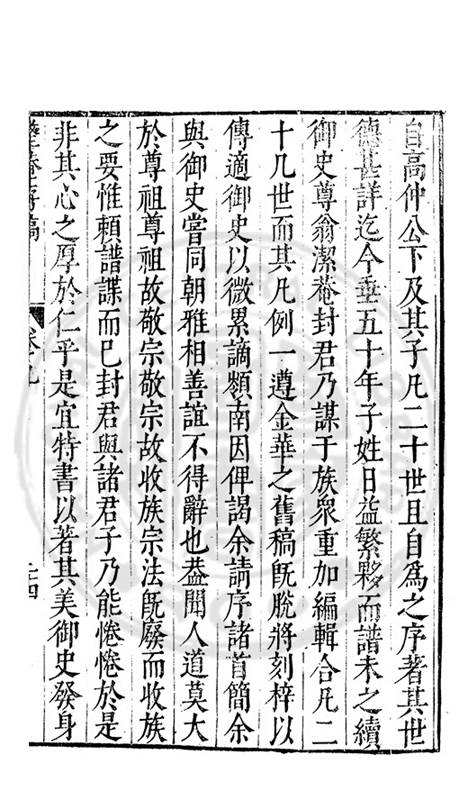 自高仲公下及其子凡二十世且自爲之序著其世
德甚詳迄今垂五十年子姓日益繁夥而譜未之續
御史尊翁潔菴封君乃謀于族衆重加編輯合凡二
十几世而其凡例一遵金華之舊稿旣脫將刻梓以
傳適御史以微累謫頖南因俾謁余請序諸首簡余
與御史嘗同朝雅相善誼不得辭也葢聞人道莫大
於尊祖尊祖故敬宗敬宗故收族宗法旣廢而收族
之要惟頼譜諜而已封君與諸君子乃能惓惓於是
非其心之厚於仁乎是宜特書以著其美御史發身
卷之九